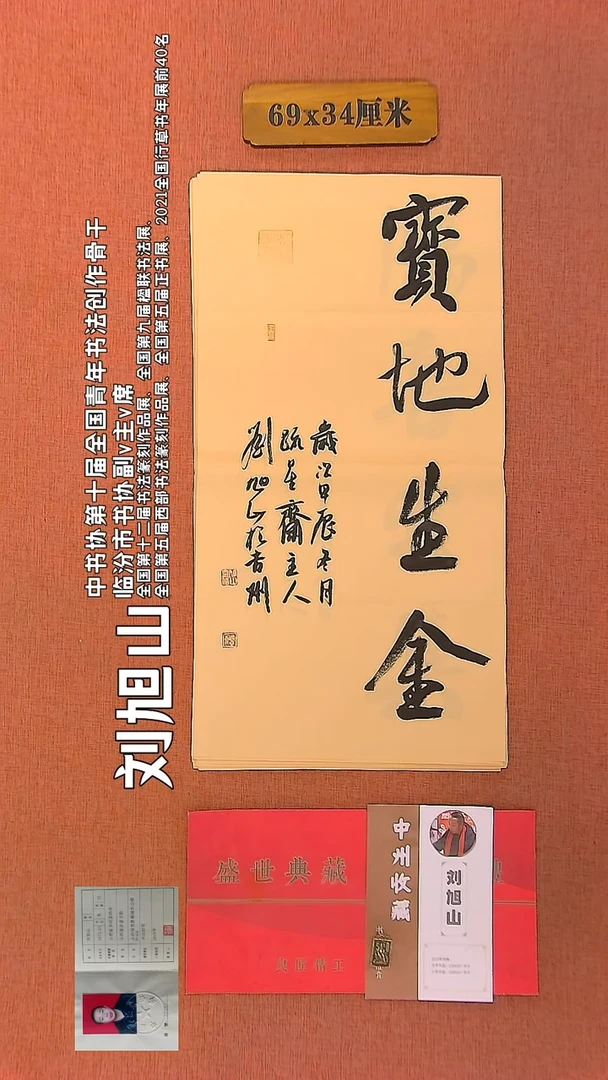 69x34厘米
寶地生金
歲次甲辰冬月
疏星齋主人
劉旭山於古州
刘旭山
中书协第十届全国青年书法创作骨干
临汾市书协副v主v席
全国第十二届书法篆刻作品展、全国第九届楹联书法展、
全国第五届西部书法篆刻作品展、全国第五届正书展、2021全国行草书年展前40名
盛世典藏
中州收藏
刘旭山